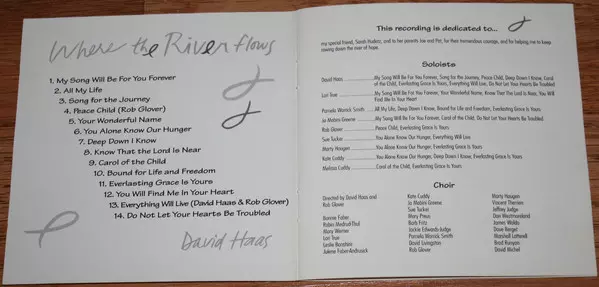 Where the River flows
1. My Song Will Be For You Forever
2. All My Life
3. Song for the Journey
4. Peace Child (Rob Glover)
5. Your Wonderful Name
6. You Alone Know Our Hunger
7. Deep Down I Know
8. Know That the Lord is Near
9. Carol of the Child
10. Bound for Life and Freedom
11. Everlasting Grace Is Yours
12. You Will Find Me In Your Heart
13. Everything Will Live (David Haas & Rob Glover)
14. Do Not Let Your Hearts Be Troubled
David Haas
This recording is dedicated to...
my special friend, Sarah and to her parents Joe and Pat, for their tremendous courage, and for helping me to keep
rowing down the river of hope.
Soloists
David Haas ..........My Song Will Be For You Forever, Song for the Journey, Peace Child, Deep Down I Know, Carol
of the Child, Everlasting Grace Is Yours, Everything Will Live, Do Not Let Your Hearts Be Troubled
Lori True ..........My Song Will Be For You Forever, Your Wonderful Name, Know That The Lord is Near, You Will
Find Me In Your Heart
Pamela Warrick Smith ..All My Life, Deep Down I Know, Bound for Life and Freedom, Everlasting Grace Is Yours
Jo Mattera Greene ..My Song Will Be For You Forever, Carol of the Child, Do Not Let Your Hearts Be Troubled
Rob Glover ..........Peace Child, Everlasting Grace Is Yours
Sue Tucker ..........You Alone Know Our Hunger, Everything Will Live
Marty Haugen ..........You Alone Know Our Hunger, Everlasting Grace Is Yours
Kate Cuddy ..........You Alone Know Our Hunger, Deep Down I Know, Everlasting Grace Is Yours
Melissa Cuddy ..........Carol of the Child, Everlasting Grace Is Yours
Choir
Directed by David Haas and
Rob Glover
Bonnie Faber
Robin
Mary Werner
Lori True
Leslie
Julene
Kate Cuddy
Jo Mattera Greene
Sue Tucker
Mary Preus
Barb
Jackie Edwards-Judge
Pamela Warrick Smith
David Livingston
Rob Glover
Marty Haugen
Vincent Therrien
Jeffrey Judge
Don Westmoreland
James Waldo
Dave Bengel
Marshall
Brad Runyan
David Michel